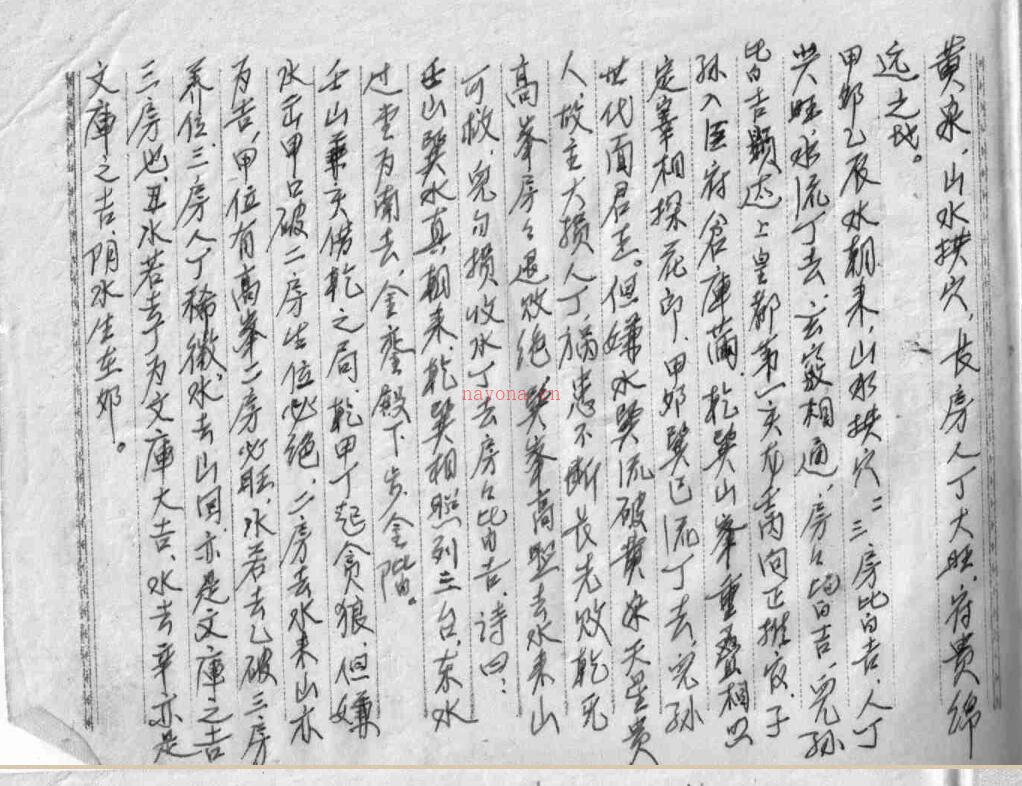 黄泉，山水拱穴，长房人丁大旺，富贵绵
远之砂。
甲卯乙辰水朝来，山水拱穴，二三房比白吉，人丁
兴旺，水流丁去，玄窍相通，房々均白吉，児孙
比白吉显达上皇都，第一亥龙丙向正推寅，子
孙入臣府仓库满，乾巽山峯重叠相照
定宰相探花郎，甲卯巽巳流丁去，児孙
世代面君王。但嫌水巽流破黄泉天星贵
人，故主大损人丁，祸患不断长先败，乾死
高峯房々退败绝，巽峯高照去水来山
可救，児勾损收水丁去房々比白吉，诗曰：
壬山巽水真朝来，乾巽相照列三台，东水
过堂为南去，金銮殿下步金阶。
壬山兼亥借乾之局，乾甲丁起贪狼，但嫌
水出甲口破二房生位必绝，二房去水来山亦
为吉，甲位有高峯二房必旺，水若去乙破三房
养位，三房人丁稀微，水去山回，亦是文库之吉
三房也，丑水若去丁为文库大吉，水去辛亦是
文库之吉，阴水生在卯。
nayona.cn